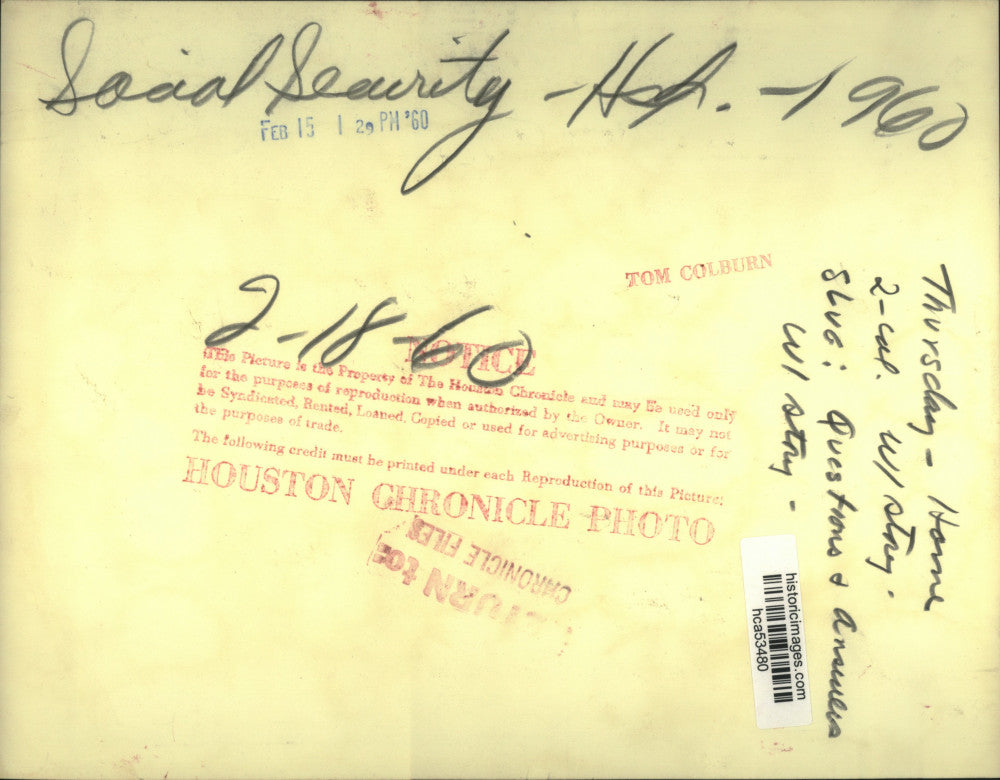 Social Security - Hsp. - 1960
FEB 15 1 29 PM '60
TOM COLBURN
2-18-60
NOTICE
This Picture is the Property of The Houston Chronicle and may be used only
for the purposes of reproduction when authorized by the Owner. It may not
be Syndicated, Rented, Loaned, Copied or used for advertising purposes or for
the purposes of trade.
The following credit must be printed under each Reproduction of this Picture:
HOUSTON CHRONICLE PHOTO
RETURN to:
CHRONICLE FILES
Thursday - Home
2-col. W/ story.
SLUG: Questions & Answers
W/ story -
historicimages.com
hca53480